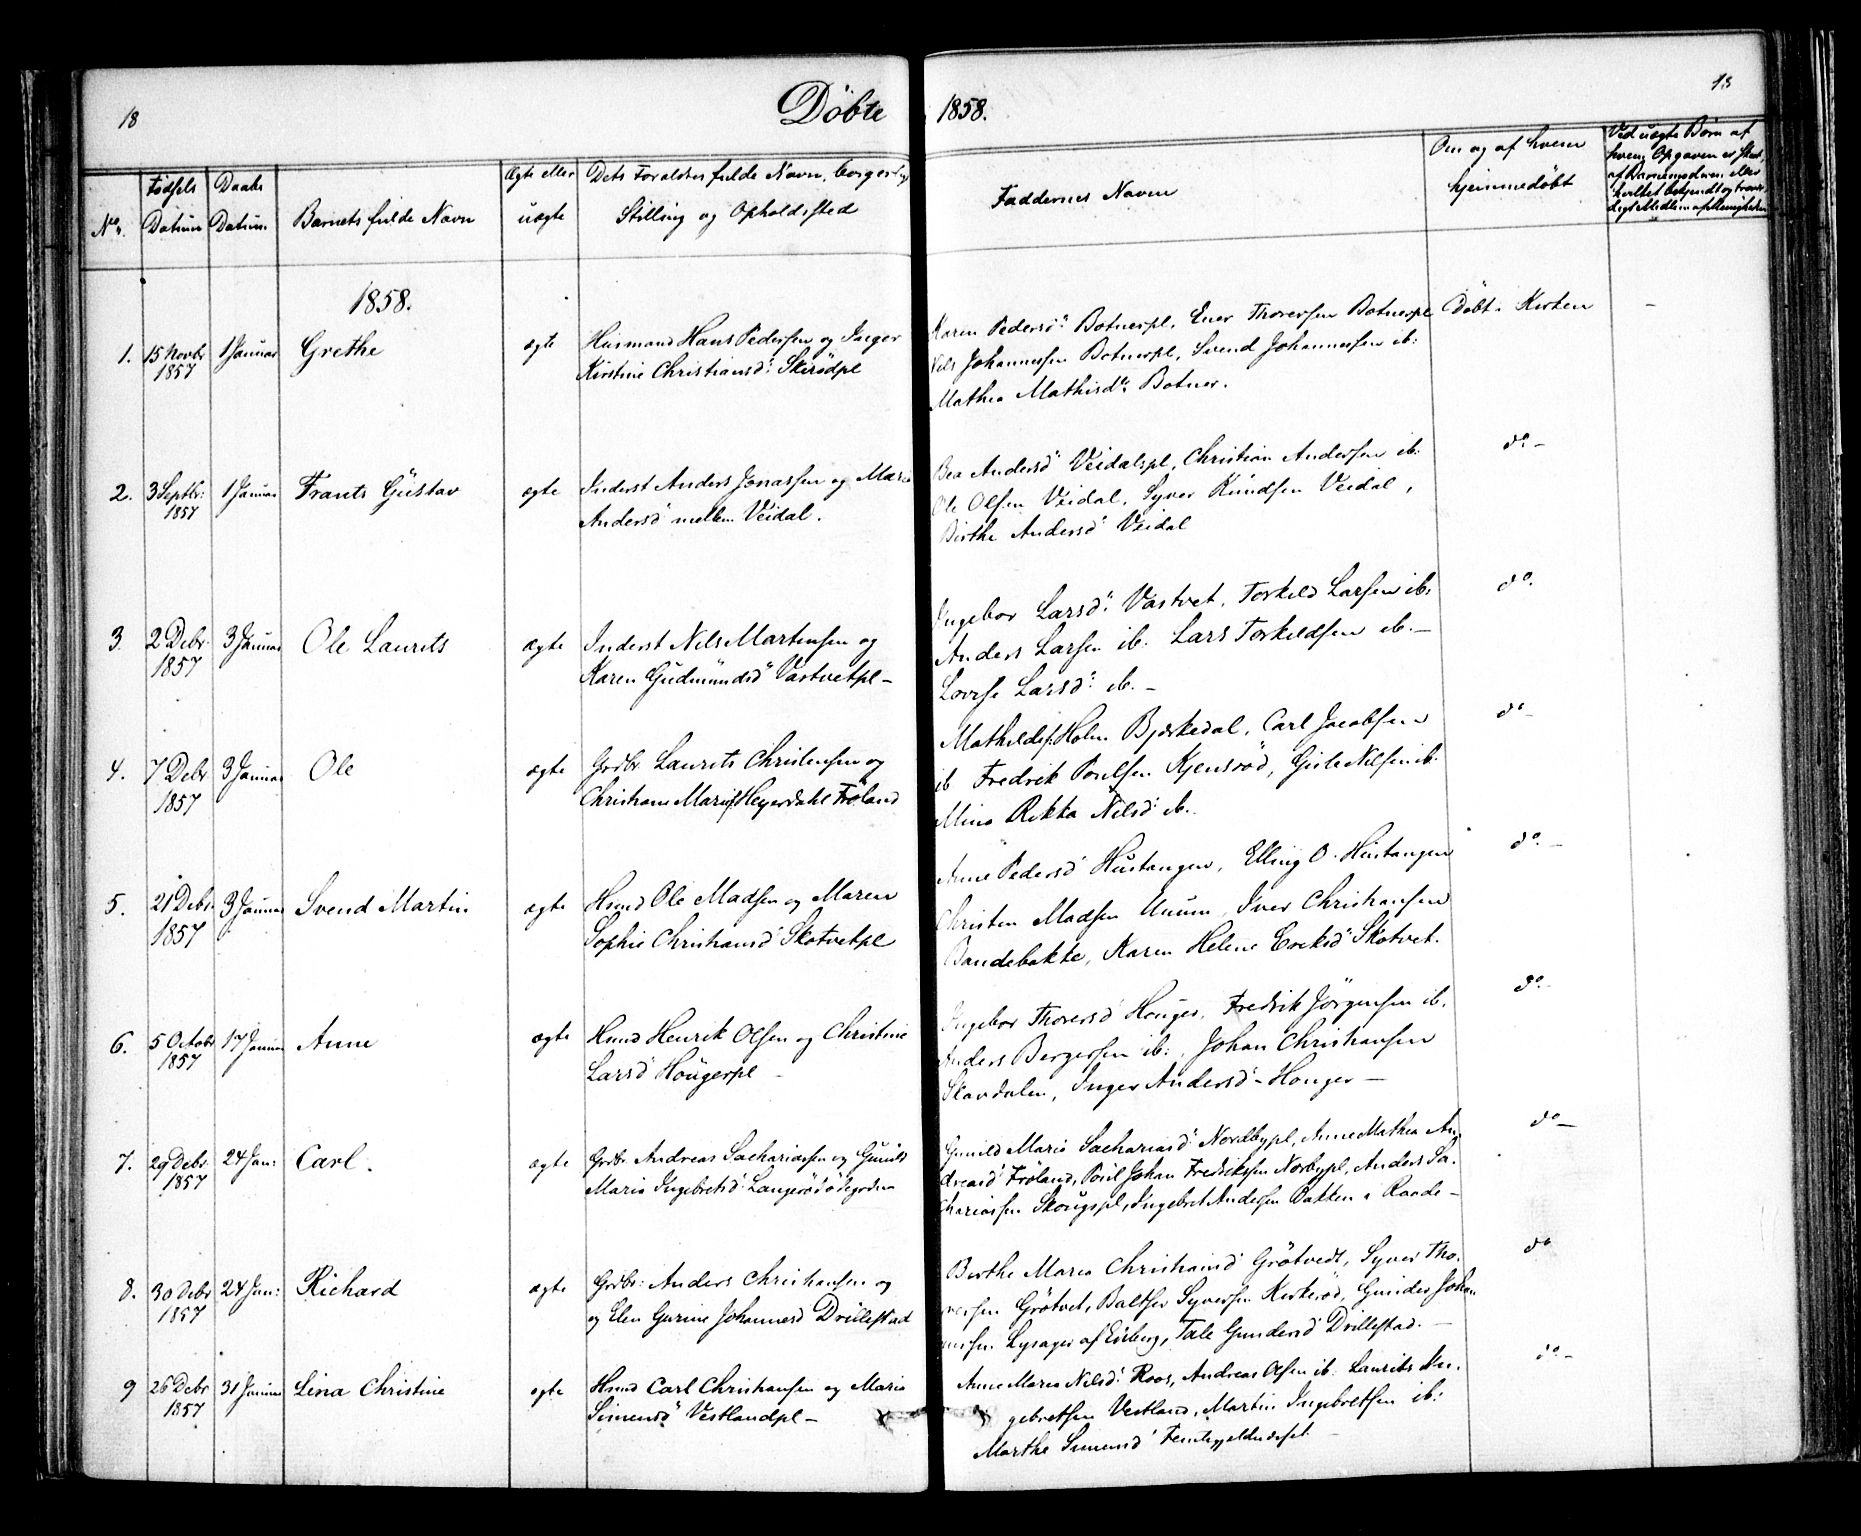 18
Döbte
1858.
18
No.
Födsels Datum
Daabs Datum
Barnets fulde Navn
Ægte eller uægte
Dets Forældres fulde Navn, borgerlig
Stilling og Opholdsted
Faddernes Navne
Om og af hvem
hjemmedöbt
Ved uægte Börn af
hvem Opgaven er skeet,
af Barnemoderen eller
hvilket bekjendt og trovær-
digt Medlem af Menigheden
1858.
1. 15 Novbr 1857
1 Januar
Grethe
ægte
Husmand Hans Pedersen og Inger
Kirstine Christiansd: Skirödpl
Karen Pedersd: Botnerpl. Ener Thoresen Botnerpl
Nils Johannesen Botnerpl, Svend Johannesen ib:
Mathea Mathisd: Botner.
Döbt i Kirken
-
2. 3 Septbr: 1857
1 Januar
Frants Gustav
ægte
Inderst Anders Jonassen og Maria
Andersd mellem Veidal.
Bea Andersd Veidalspl, Christian Andersen ib:
Ole Olsen Veidal, Syver Knudsen Veidal,
Birthe Andersd Veidal
do -
3. 2 Debr 1857
3 Januar
Ole Laurits
ægte
Inderst Nils Martensen og
Karen Gudmundsd Vastvetpl -
Ingebor Larsd: Vastvet, Torkild Larsen ib:
Anders Larsen ib. Lars Torkildsen ib. -
Lovise Larsd: ib. -
do.
4. 7 Debr 1857
3 Januar
Ole
ægte
Grdbr. Laurits Christensen og
Christiane Marie f. Heyerdahl Fröland
Mathilde f. Holm Bjerkedal, Carl Jacobsen
ib Fredrik Poulsen Kjensröd, Gule Nilsen ib.
Mina Rikka Nilsd: ib.
do -
5. 21 Debr 1857
3 Januar
Svend Martin
ægte
Hsmd Ole Madsen og Maren
Sophie Christiansd Skotvetpl
Anne Pedersd Hustangen, Elling O. Hustangen
Christen Madsen Unum, Iver Christiansen
Bandebakke, Karen Helene Eriksd Skotvet.
do. -
6. 5 Octobr 1857
17 Januar
Anne
ægte
Hsmd Henrik Olsen og Christine
Larsd Hougerpl -
Ingebor Thoresd Houger, Fredrik Jörgensen ib.
Anders Bergersen ib:, Johan Christiansen
Skavdalen, Inger Andersd - Houger -
do. -
7. 29 Debr 1857
24 Jan:
Carl.
ægte
Grdbr. Andreas Sachariassen og Gunild
Maria Ingebretsd: Langeröd ödegorden
Gunild Maria Sachariasd Nordbypl, Anne Mathea An-
dreasd Fröland, Poul Johan Fredriksen Norbypl, Anders Sa-
chariassen Skougspl, Ingebret Andersen Bakken i Raade -
do -
8. 30 Debr 1857
24 Jan:
Richard
ægte
Grdbr: Anders Christiansen og
og Elen Gurine Johannesd Drillestad
Birthe Maria Christiansd Grötvedt, Syver Tho-
resen Grötvet, Baltser Syversen Kirkeröd, Gunder Johan-
nesen Lysager af Eidberg, Tale Gundersd Drillestad. -
do
9 26 Debr 1857
31 Januar
Lina Christine
ægte
Hsmd Carl Christiansen og Maria
Simensd Vestlandpl -
Anne Maria Nilsd: Roos, Andreas Olsen ib. Laurits In-
gebretsen Vestland, Martin Ingebretsen ib:
Marthe Simensd
do -